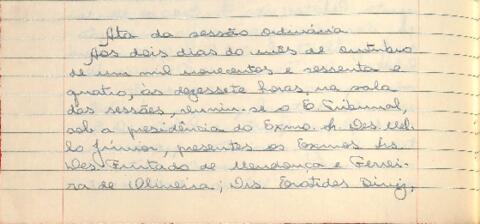 Ata da sessão ordinária
Aos dois dias do mês de outubro
de um mil novecentos e sessenta e
quatro, às dezessete horas, na sala
das sessões, reuniu-se o E. Tribunal,
sob a presidência do Exmo. Sr. Des. Mel-
lo Júnior, presentes os Exmos Srs.
Des. Furtado de Mendonça e Ferrei-
ra de Oliveira; Drs. Erotides Diniz,